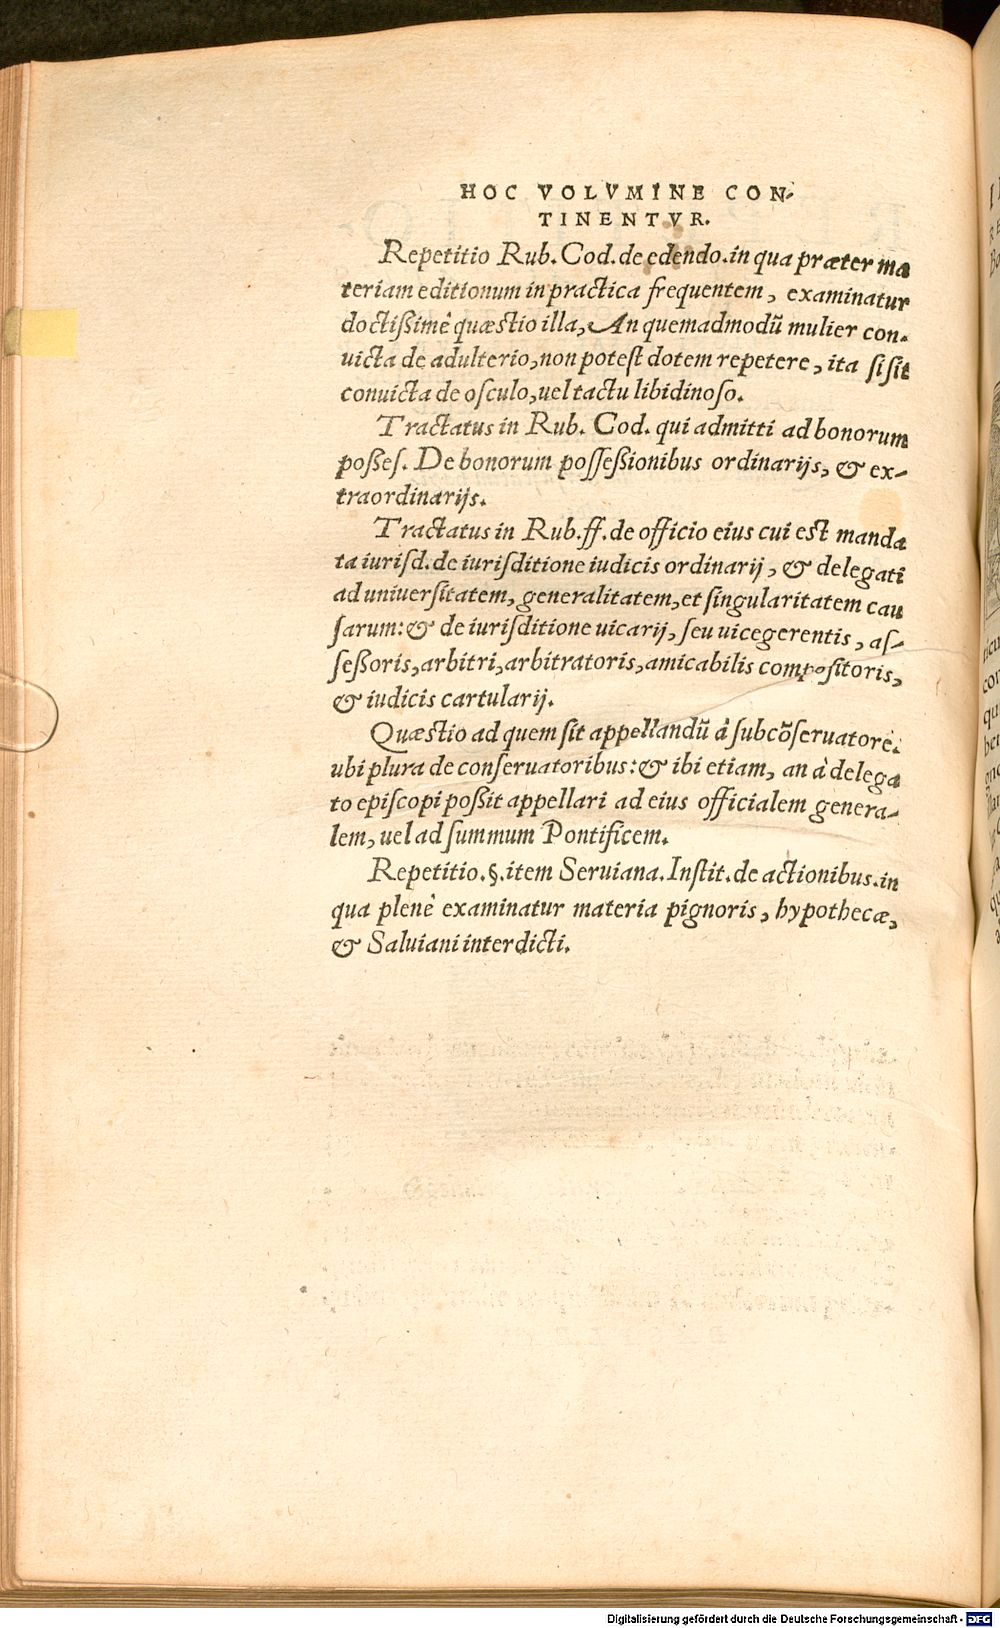 HOC VOLVMINE CON-
TINENTVR.
Repetitio Rub. Cod. de edendo. in qua præter ma
teriam editionum in practica frequentem, examinatur
doctißimè quæstio illa, An quemadmodũ mulier con-
uicta de adulterio, non potest dotem repetere, ita si sit
conuicta de osculo, uel tactu libidinoso.
Tractatus in Rub. Cod. qui admitti ad bonorum
posses. De bonorum possessionibus ordinarijs, & ex-
traordinarijs.
Tractatus in Rub. ff. de officio eius cui est manda
ta iurisd. de iurisditione iudicis ordinarij, & delegati
ad uniuersitatem, generalitatem, et singularitatem cau
sarum: & de iurisditione uicarij, seu uicegerentis, as-
seßoris, arbitri, arbitratoris, amicabilis compositoris,
& iudicis cartularij.
Quæstio ad quem sit appellandũ à subcõseruatore.
ubi plura de conseruatoribus: & ibi etiam, an à delega
to episcopi poßit appellari ad eius officialem genera-
lem, uel ad summum Pontificem.
Repetitio. §. item Seruiana. Instit. de actionibus. in
qua plenè examinatur materia pignoris, hypothecæ,
& Saluiani interdicti.
Digitalisierung gefördert durch die Deutsche Forschungsgemeinschaft - DFG